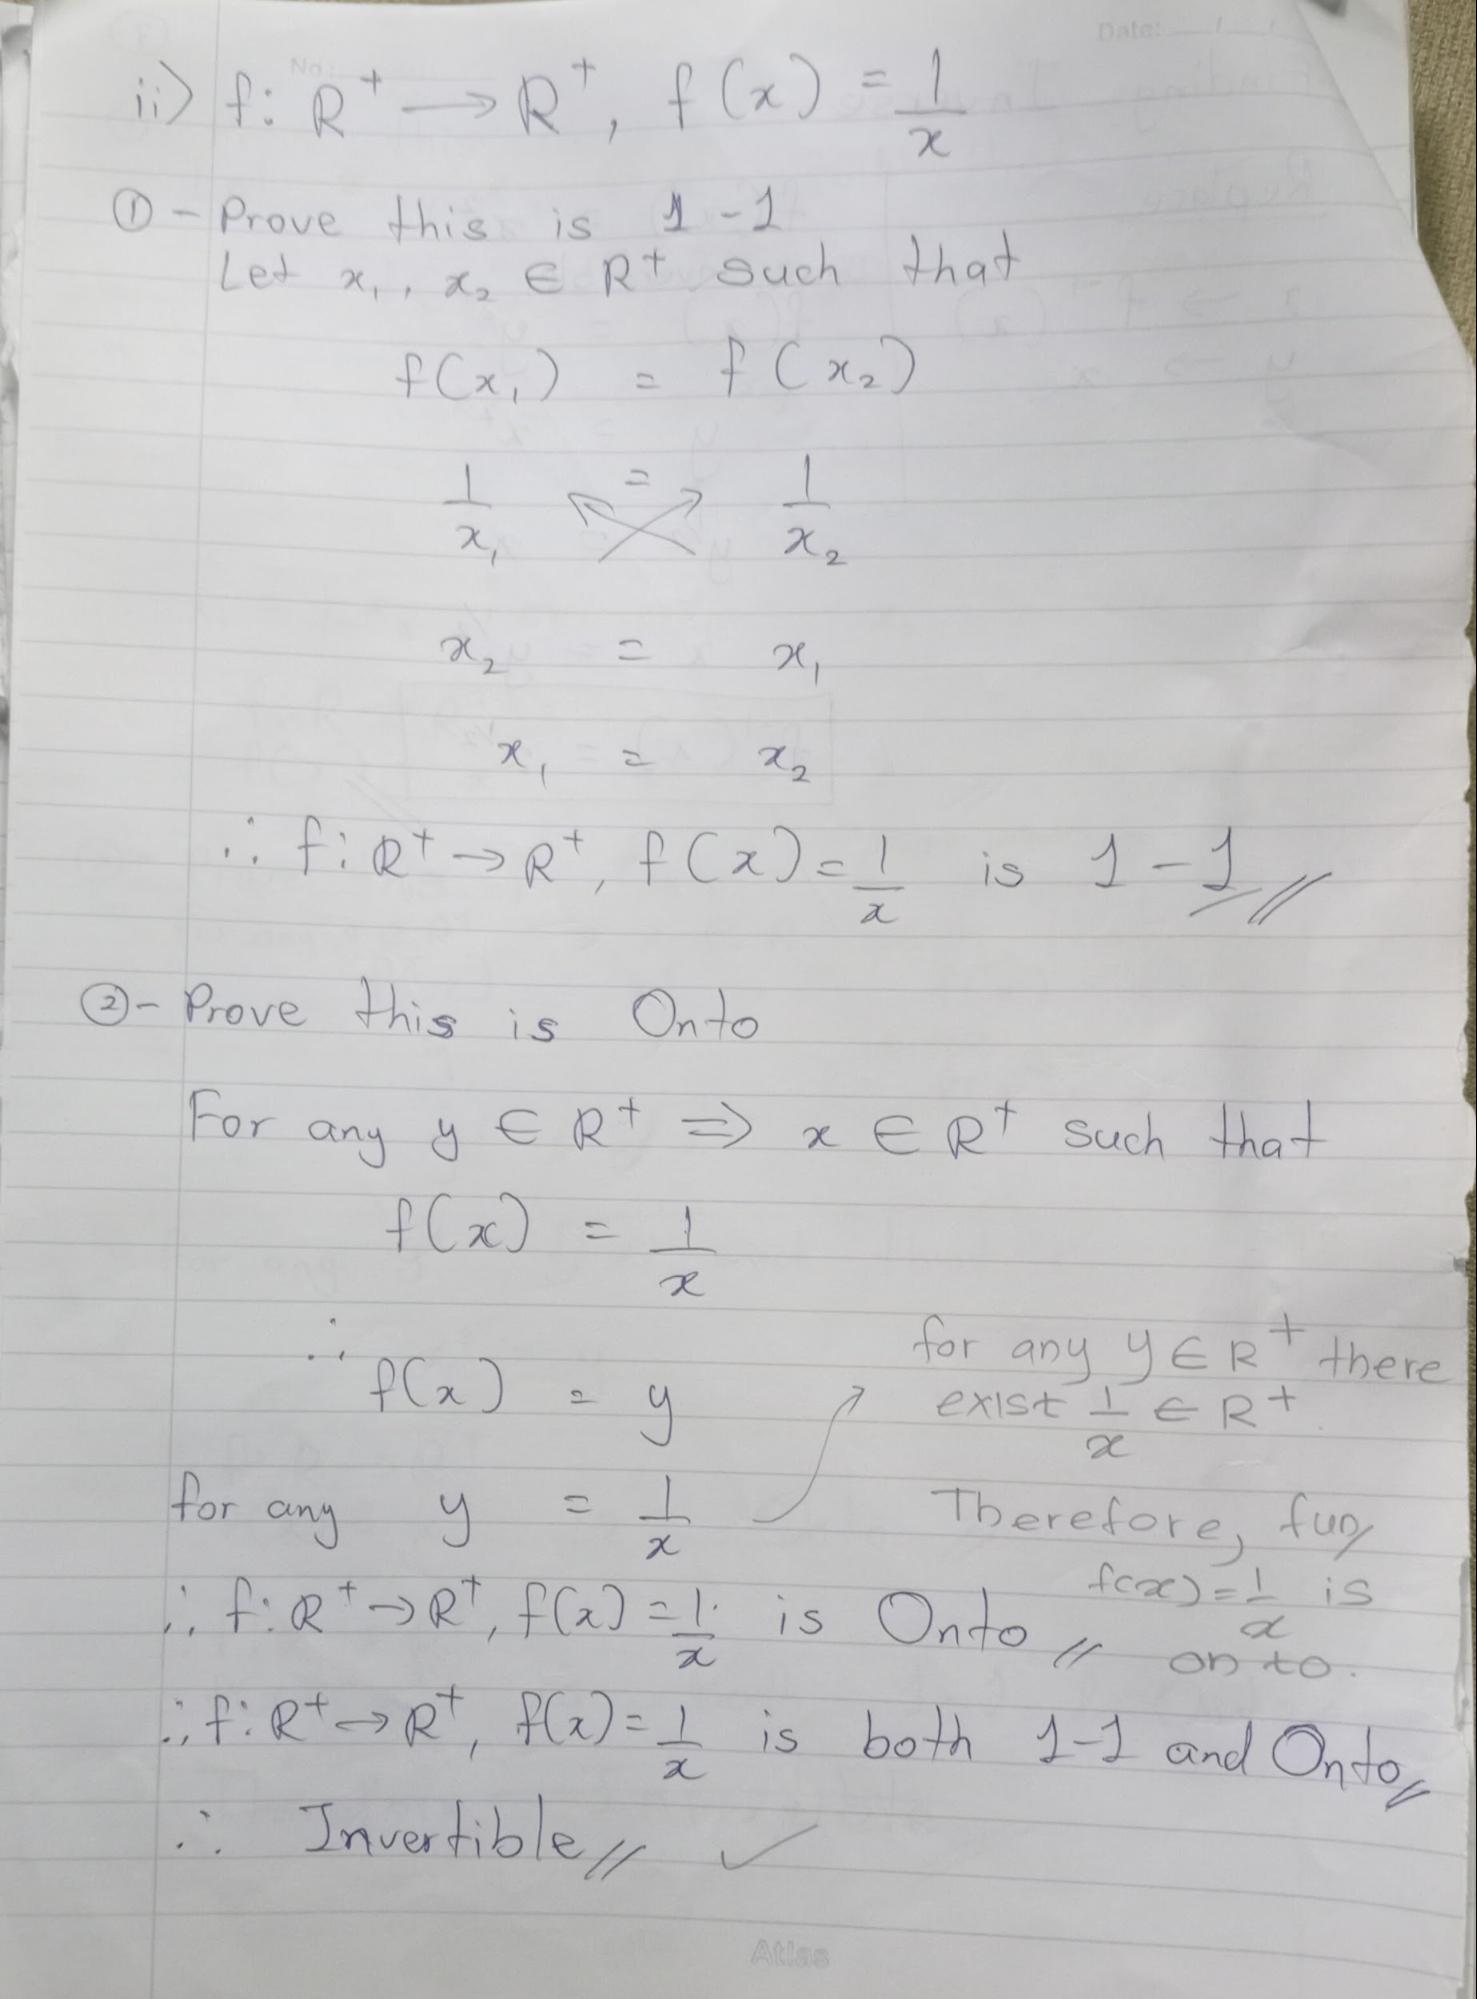 Date:
No:
ii) f: R⁺ → R⁺, f(x) = 1/x
① - Prove this is 1-1
Let x₁, x₂ ∈ R⁺ such that
f(x₁) = f(x₂)
1/x₁ = 1/x₂
x₂ = x₁
x₁ = x₂
∴ f: R⁺ → R⁺, f(x) = 1/x is 1-1 //
② - Prove this is Onto
For any y ∈ R⁺ ⇒ x ∈ R⁺ such that
f(x) = 1/x
∴ f(x) = y
for any y = 1/x
for any y ∈ R⁺ there
exist 1/x ∈ R⁺.
Therefore, fun
f(x) = 1/x is
on to.
∴ f: R⁺ → R⁺, f(x) = 1/x is Onto //
∴ f: R⁺ → R⁺, f(x) = 1/x is both 1-1 and Onto //
∴ Invertible // ✓
Atlas